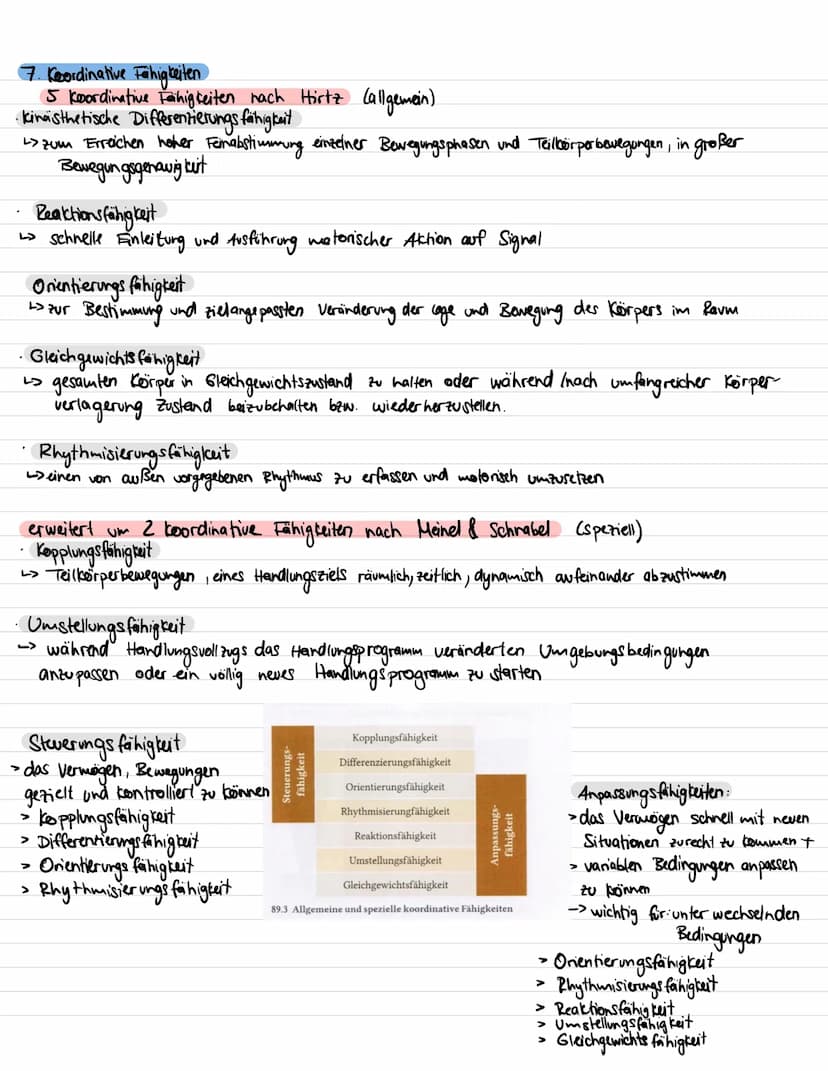 7. Koordinative Fähigkeiten
5 koordinative Fähigkeiten nach Hirtz (allgemein)
· kinästhetische Differentierungsfähigkeit
↳ zum Erreichen hoher Feinabstimmung einzelner Bewegungsphasen und Teilkörperbewegungen, in großer
Bewegungsgenauigkeit
· Reaktionsfähigkeit
↳ schnelle Einleitung und Ausführung motorischer Aktion auf Signal
Orientierungsfähigkeit
↳ zur Bestimmung und zielangepassten Veränderung der Lage und Bewegung des Körpers im Raum
· Gleichgewichtsfähigkeit
↳ gesamten Körper in Gleichgewichtszustand zu halten oder während /nach umfangreicher Körper-
verlagerung Zustand beizubehalten bzw. wiederherzustellen.
· Rhythmisierungsfähigkeit
↳ einen von außen vorgegebenen Rhythmus zu erfassen und motorisch umzusetzen
erweitert um 2 koordinative Fähigkeiten nach Meinel & Schnabel (speziell)
· Kopplungsfähigkeit
↳ Teilkörperbewegungen, eines Handlungsziels räumlich, zeitlich, dynamisch aufeinander abzustimmen
· Umstellungsfähigkeit
→ während Handlungsvollzugs das Handlungsprogramm veränderten Umgebungsbedingungen
anzupassen oder ein völlig neues Handlungsprogramm zu starten
Steuerungsfähigkeit
> das Vermögen, Bewegungen
gezielt und kontrolliert zu können
> Kopplungsfähigkeit
> Differentierungsfähigkeit
> Orientierungsfähigkeit
> Rhythmisierungsfähigkeit
Steuerungs-
fähigkeit
Kopplungsfähigkeit
Differenzierungsfähigkeit
Orientierungsfähigkeit
Rhythmisierungfähigkeit
Reaktionsfähigkeit
Umstellungsfähigkeit
Gleichgewichtsfähigkeit
Anpassungs-
fähigkeit
89.3 Allgemeine und spezielle koordinative Fähigkeiten
Anpassungsfähigkeiten:
> das Vermögen schnell mit neuen
Situationen zurecht zu kommen +
> variablen Bedingungen anpassen
zu können
→ wichtig für: unter wechselnden
Bedingungen
> Orientierungsfähigkeit
> Rhythmisierungsfähigkeit
> Reaktionsfähigkeit
> Umstellungsfähigkeit
> Gleichgewichtsfähigkeit